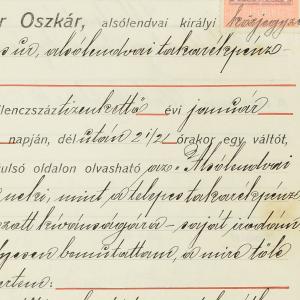 r Oszkár, alsólendvai királyi közjegyző
úr, alsólendvai takarékpénz-
lenczszáz tizenkettő évi január
napján, dél után 2 1/2 órakor egy váltót,
tulsó oldalon olvasható az "Alsólendvai
neki, mint a telepes takarékpénz
kívánságára - saját irodám
bemutattam, a mire tőle
rtem: